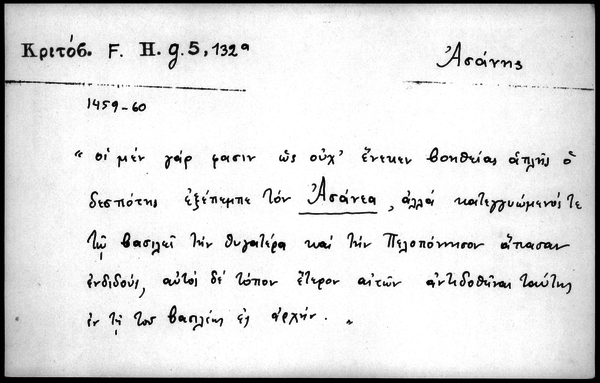 Κριτόβ. F. H. g. 5, 132a
Ἀσάνης
1459-60
" οἱ μέν γάρ φασιν ὡς οὐχ' ἕνεκεν βοηθείας ἁπλῆς ὁ
δεσπότης ἐξέπεμπε τόν Ἀσάνεα, ἀλλά κατεγγυώμενός τε
τῷ βασιλεῖ τήν θυγατέρα καί τήν Πελοπόννησον ἅπασαν
ἐνδιδούς, αὐτοί δέ τόπον ἕτερον αἰτῶν ἀντιδοθῆναι ταύτης
ἐν τῇ τοῦ βασιλέως ἐς ἀρχήν. "